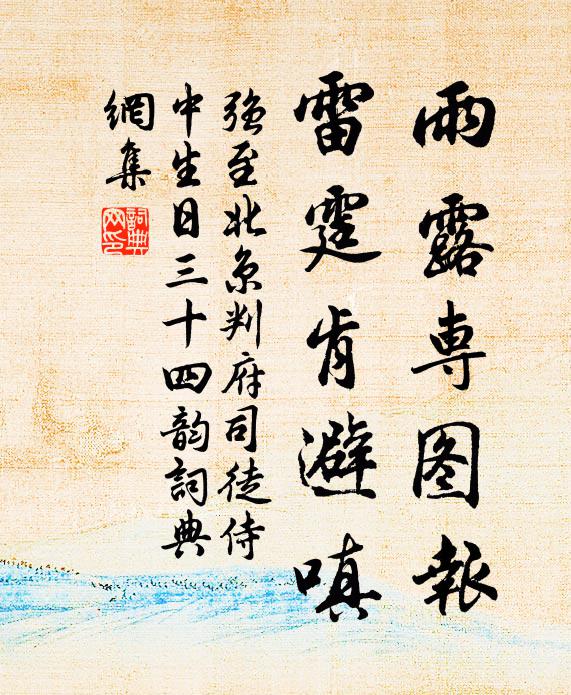 雨露専图報
雷霆肯避嗔
强至北京判府司徒侍
中生日三十四韵詞典
網集
詞典網印